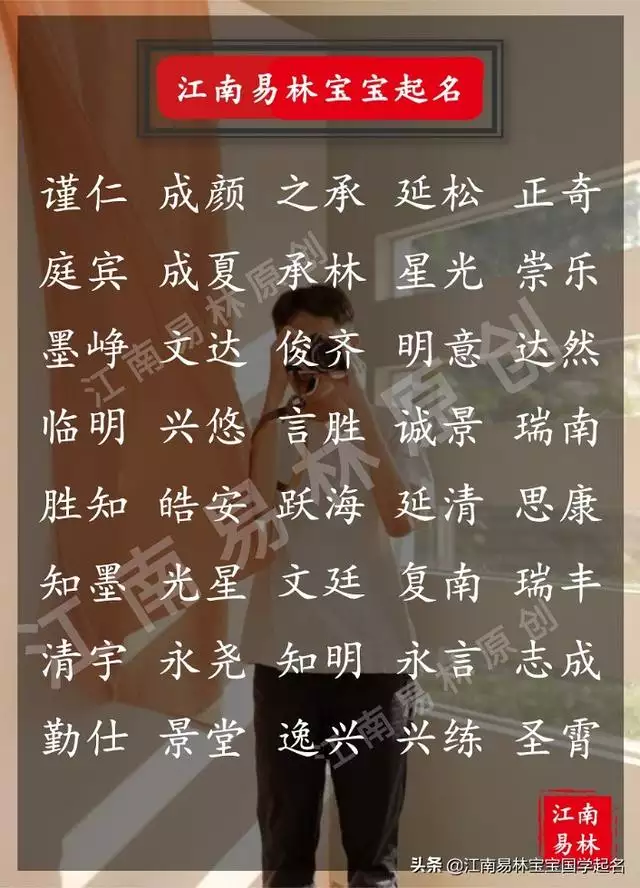 江南易林宝宝起名
谨仁 成颜 之承 延松 正奇
庭宾 成夏 承林 星光 崇乐
墨峥 文达 俊齐 明意 达然
临明 兴悠 言胜 诚景 瑞南
胜知 皓安 跃海 延清 思康
知墨 光星 文廷 复南 瑞丰
清宇 永尧 知明 永言 志成
勤仕 景堂 逸兴 兴练 圣霄
江南易林原创
江南易林原创
江南易林原创
江南
易林
头条 @江南易林宝宝国学起名